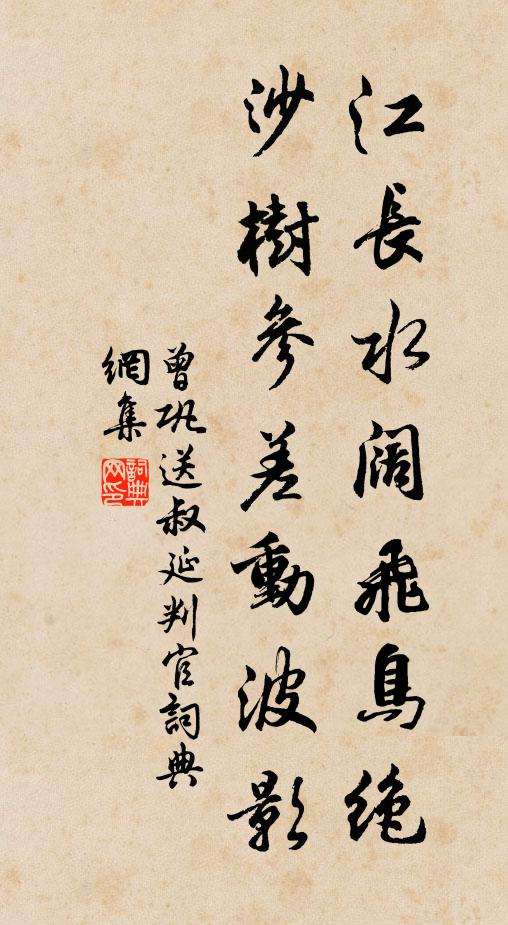 江長水闊飛鳥絶
沙樹參差動波影
曾巩送叔延判官詞典
網集
詞典
网印